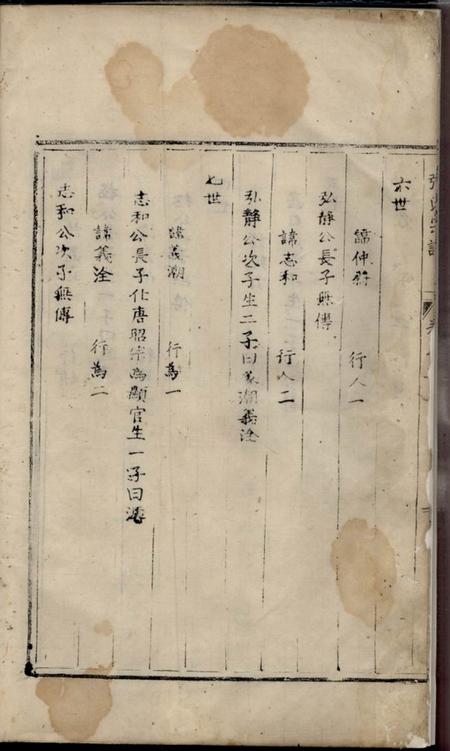 六世
諱仲 行人一
弘靜公長子無傳
諱志和 行人二
弘靜公次子生二子曰義潮義淦
七世
諱義潮 行萬一
志和公長子仕唐昭宗為顯官生一子曰
諱義淦 行萬二
志和公次子無傳